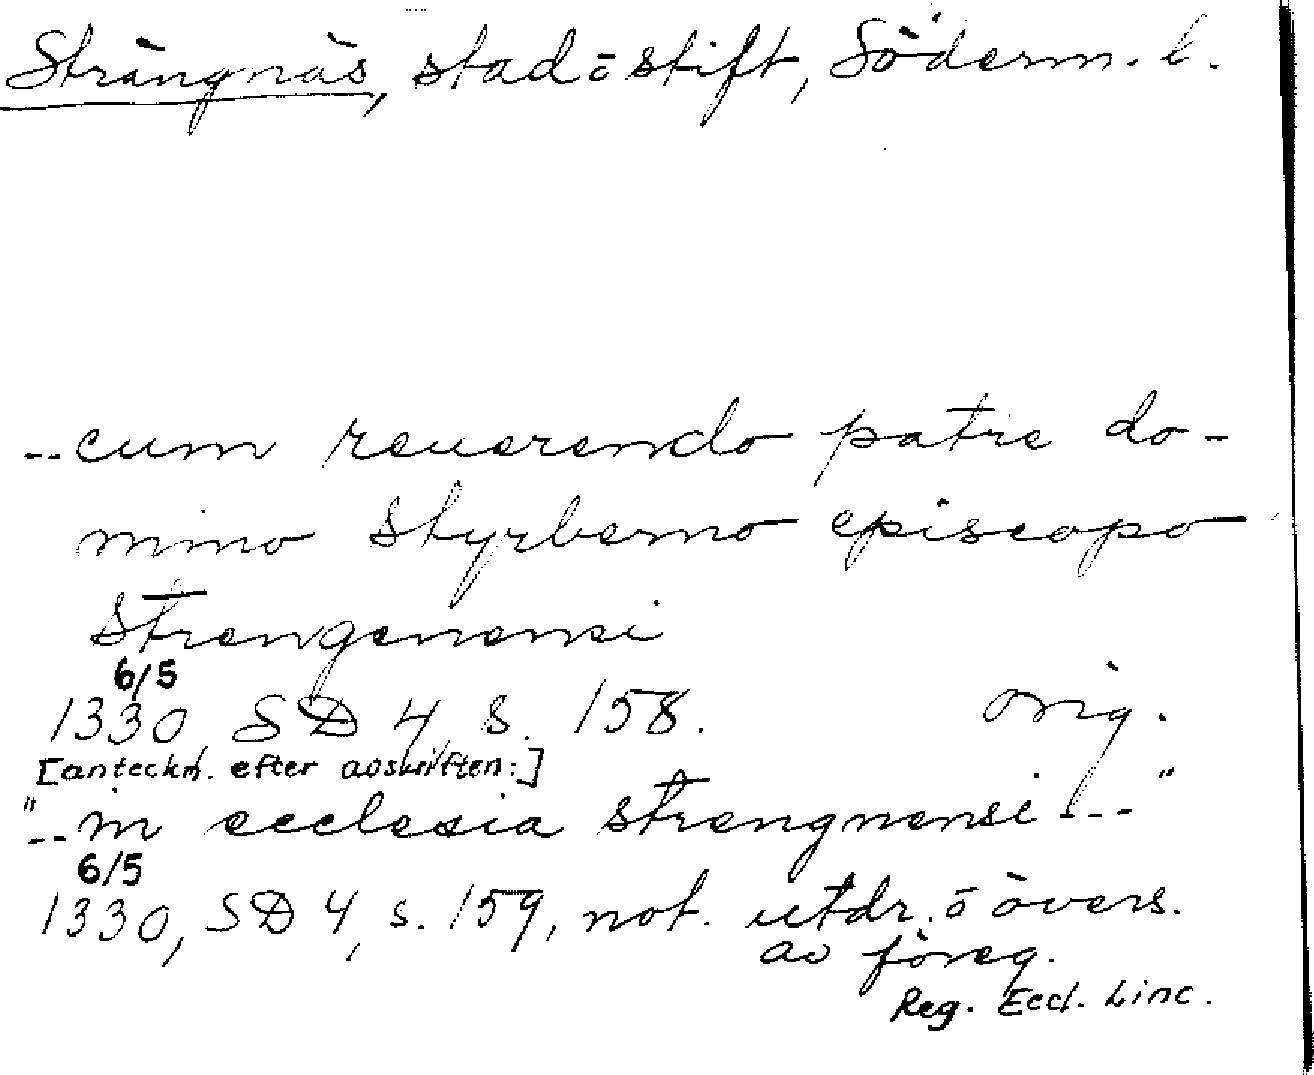 Strängnäs, stad ō stift, Söderm. l.
--cum reuerendo patre do-
mino Styrberno episcopo
Strengenensi
6/5
1330 SD 4 s. 158. orig.
[anteckn. efter avskriften:]
"--in ecclesia strengnensi---"
6/5
1330, SD 4, s. 159, not. utdr. ō övers.
av föreg.
Reg. Eccl. Linc.